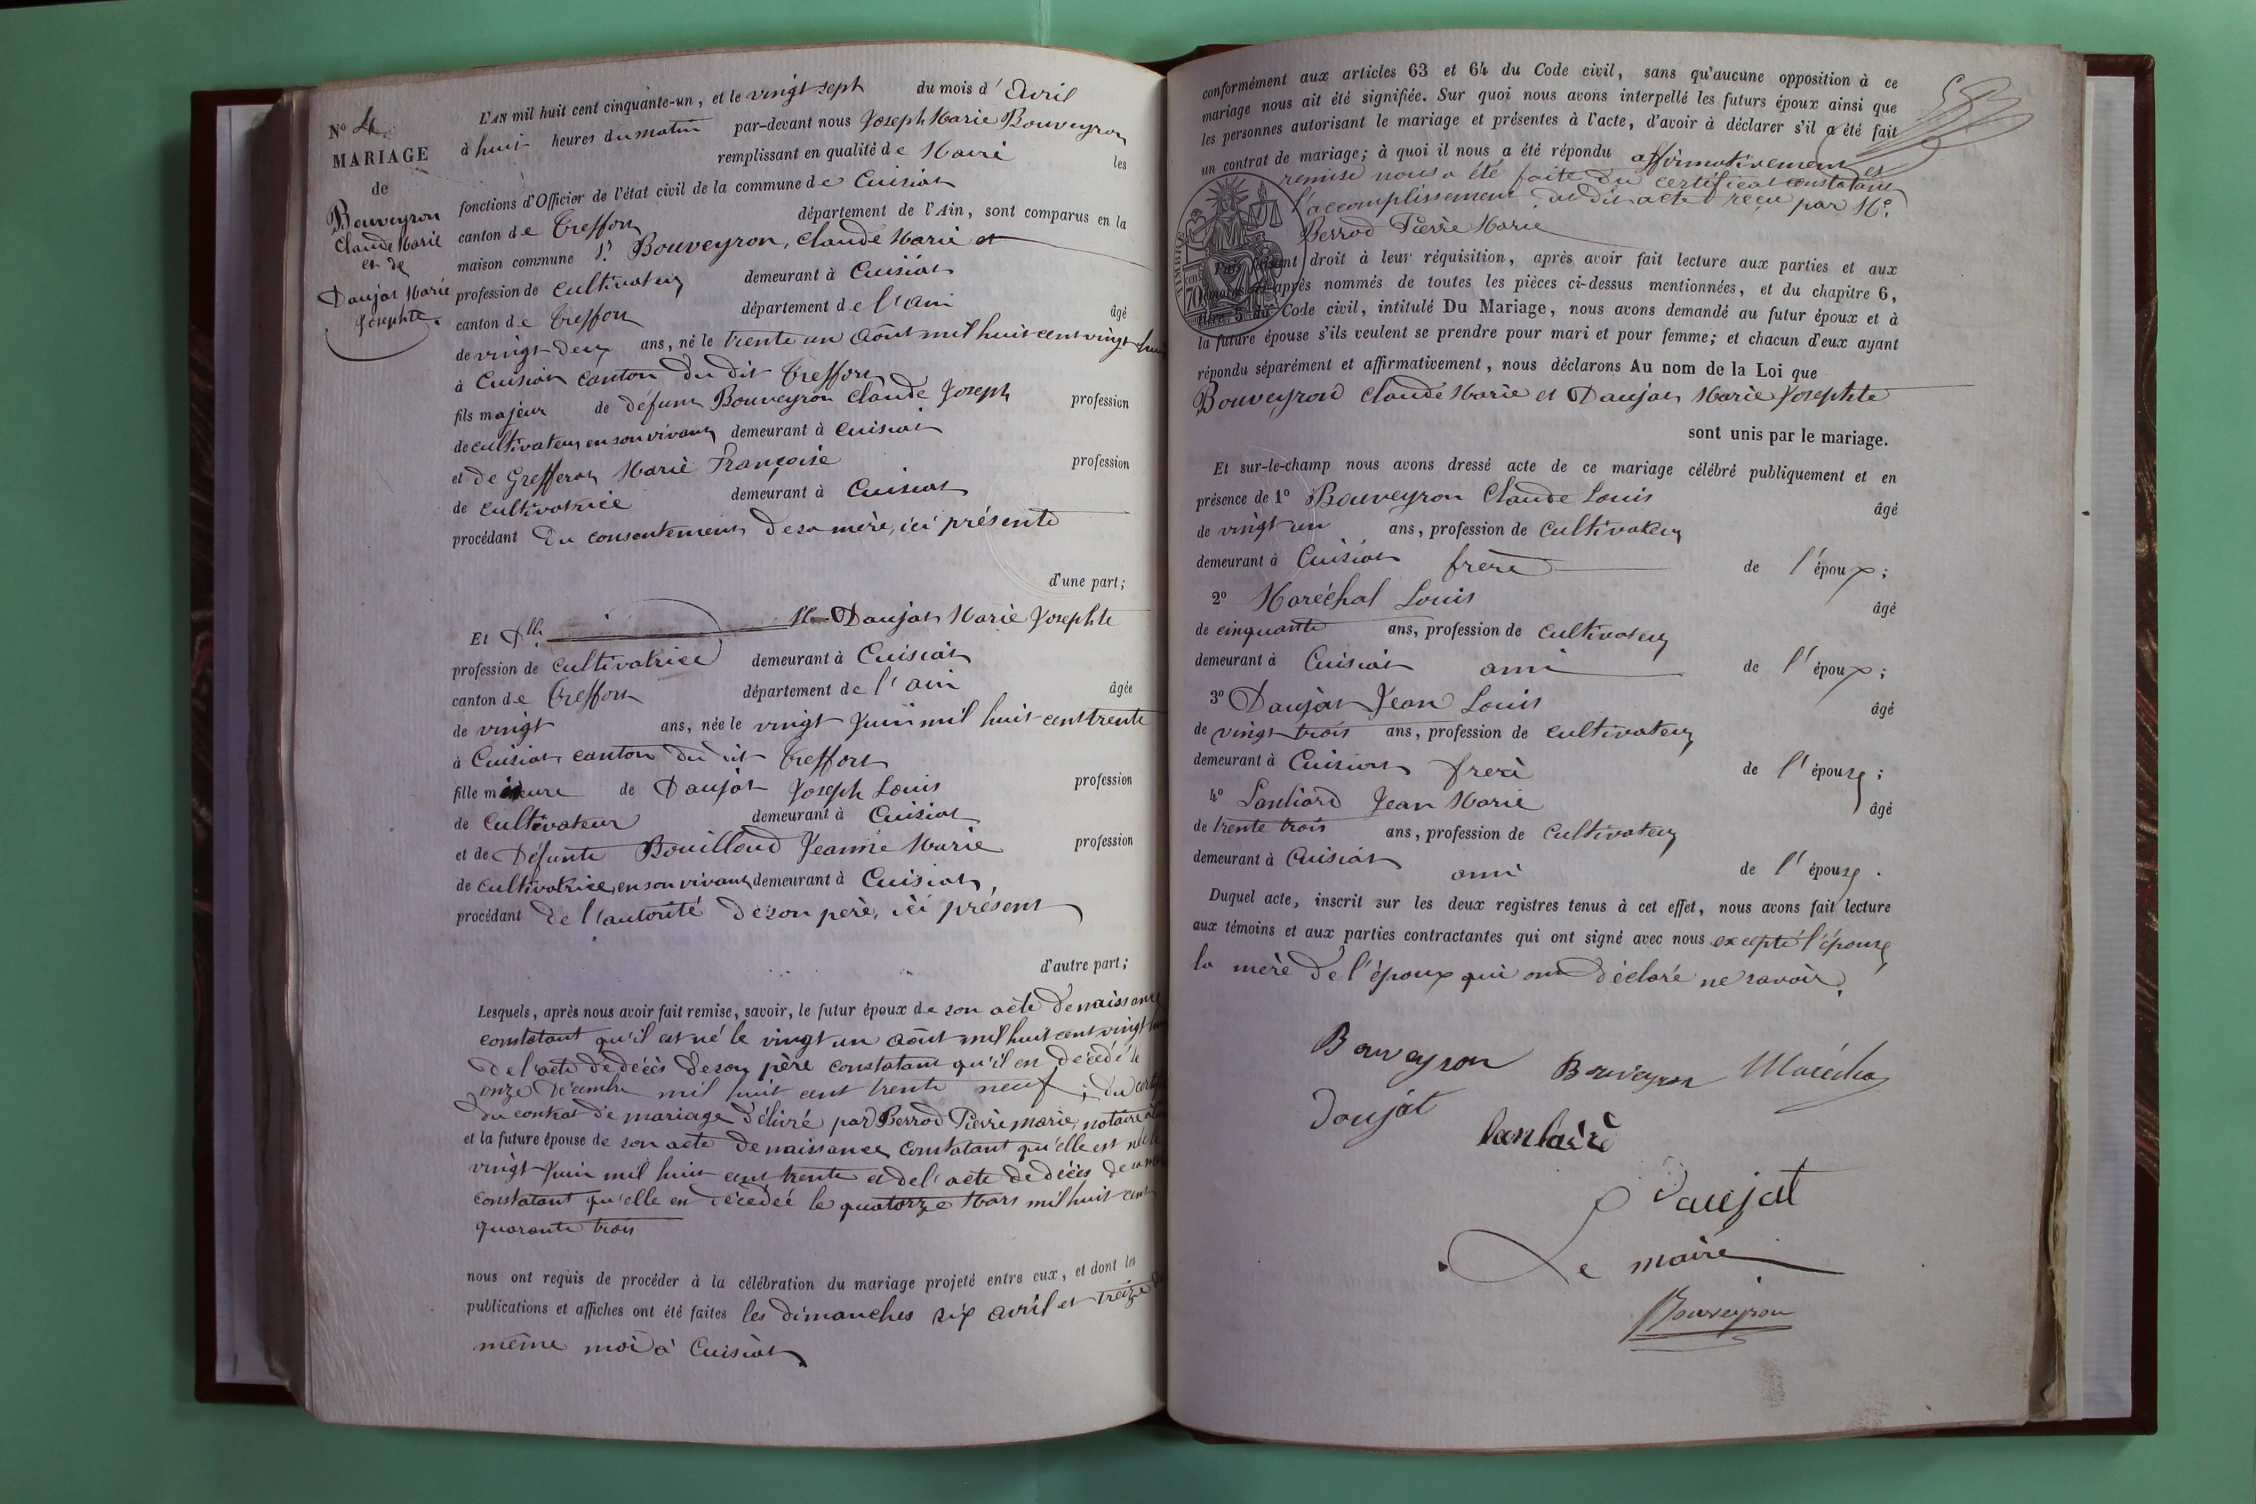 N° 4
MARIAGE
de
Bouveyron
Claude Marie
et de
Daujat Marie
Josephte
L'AN mil huit cent cinquante-un, et le vingt sept du mois d'Avril
à huit heures du matin par-devant nous Joseph Marie Bouveyron
remplissant en qualité de Maire les
fonctions d'Officier de l'état civil de la commune de Cuisiat
canton de Treffort département de l'Ain, sont comparus en la
maison commune Sr Bouveyron, Claude Marie et
profession de cultivateur demeurant à Cuisiat
canton de Treffort département de l'ain âgé
de vingt deux ans, né le trente un Août mil huit cent vingt huit
à Cuisiat canton du dit Treffort
fils majeur de défunt Bouveyron Claude Joseph profession
de cultivateur en son vivant demeurant à Cuisiat
et de Grefferat Marie Françoise profession
de cultivatrice demeurant à Cuisiat
procédant du consentement de sa mère, ici présente
d'une part;
Et Dlle Daujat Marie Josephte
profession de cultivatrice demeurant à Cuisiat
canton de Treffort département de l'ain âgée
de vingt ans, née le vingt Juin mil huit cent trente
à Cuisiat canton du dit Treffort
fille mineure de Daujat Joseph Louis profession
de cultivateur demeurant à Cuisiat
et de Défunte Bouilloud Jeanne Marie profession
de cultivatrice, en son vivant demeurant à Cuisiat
procédant de l'autorité de son père, ici présent
d'autre part;
Lesquels, après nous avoir fait remise, savoir, le futur époux de son acte de naissance
constatant qu'il est né le vingt un août mil huit cent vingt
de l'acte de décès de son père constatant qu'il en décédé le
onze décembre mil huit cent trente neuf; du
du contrat de mariage délivré par Berrod Pierre marie, notaire
et la future épouse de son acte de naissance constatant qu'elle est née le
vingt Juin mil huit cent trente et de l'acte de décès de sa mère
constatant qu'elle en décédée le quatorze Mars mil huit cent
quarante trois
nous ont requis de procéder à la célébration du mariage projeté entre eux, et dont les
publications et affiches ont été faites les dimanches six avril et treize
même moi à Cuisiat
conformément aux articles 63 et 64 du Code civil, sans qu'aucune opposition à ce
mariage nous ait été signifiée. Sur quoi nous avons interpellé les futurs époux ainsi que
les personnes autorisant le mariage et présentes à l'acte, d'avoir à déclarer s'il a été fait
un contrat de mariage; à quoi il nous a été répondu affirmativement et
remise nous a été faite du certificat constatant
l'accomplissement du dit acte reçu par Me
Berrod Pierre Marie
TIMBRE
70
Puis faisant droit à leur réquisition, après avoir fait lecture aux parties et aux
témoins ci-après nommés de toutes les pièces ci-dessus mentionnées, et du chapitre 6,
titre 5 du Code civil, intitulé Du Mariage, nous avons demandé au futur époux et à
la future épouse s'ils veulent se prendre pour mari et pour femme; et chacun d'eux ayant
répondu séparément et affirmativement, nous déclarons Au nom de la Loi que
Bouveyron Claude Marie et Daujat Marie Josephte
sont unis par le mariage.
Et sur-le-champ nous avons dressé acte de ce mariage célébré publiquement et en
présence de 1° Bouveyron Claude Louis âgé
de vingt un ans, profession de cultivateur
demeurant à Cuisiat frère de l'époux;
2° Maréchal Louis âgé
de cinquante ans, profession de cultivateur
demeurant à Cuisiat ami de l'époux;
3° Daujat Jean Louis âgé
de vingt trois ans, profession de cultivateur
demeurant à Cuisiat frere de l'épouse;
4° Jean Marie âgé
de trente trois ans, profession de cultivateur
demeurant à Cuisiat ami de l'épouse.
Duquel acte, inscrit sur les deux registres tenus à cet effet, nous avons fait lecture
aux témoins et aux parties contractantes qui ont signé avec nous excepté l'épouse
la mère de l'époux qui ont déclaré ne savoir.
Bouveyron Bouveyron Maréchal
Doujat
Daujat
Le maire
Bouveyron